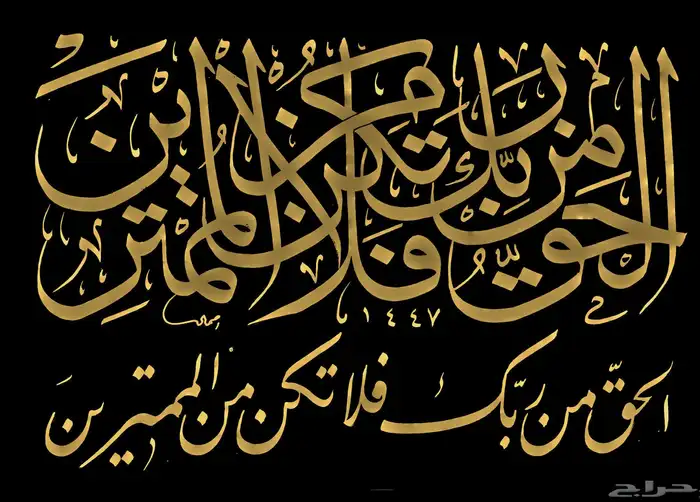 الحَقُّ مِن رَّبِّكَ فَلَا تَكُن مِّنَ المُمتَرِينَ
١٤٤٧
الحقّ من ربّك فلا تكن من الممترين
حراج